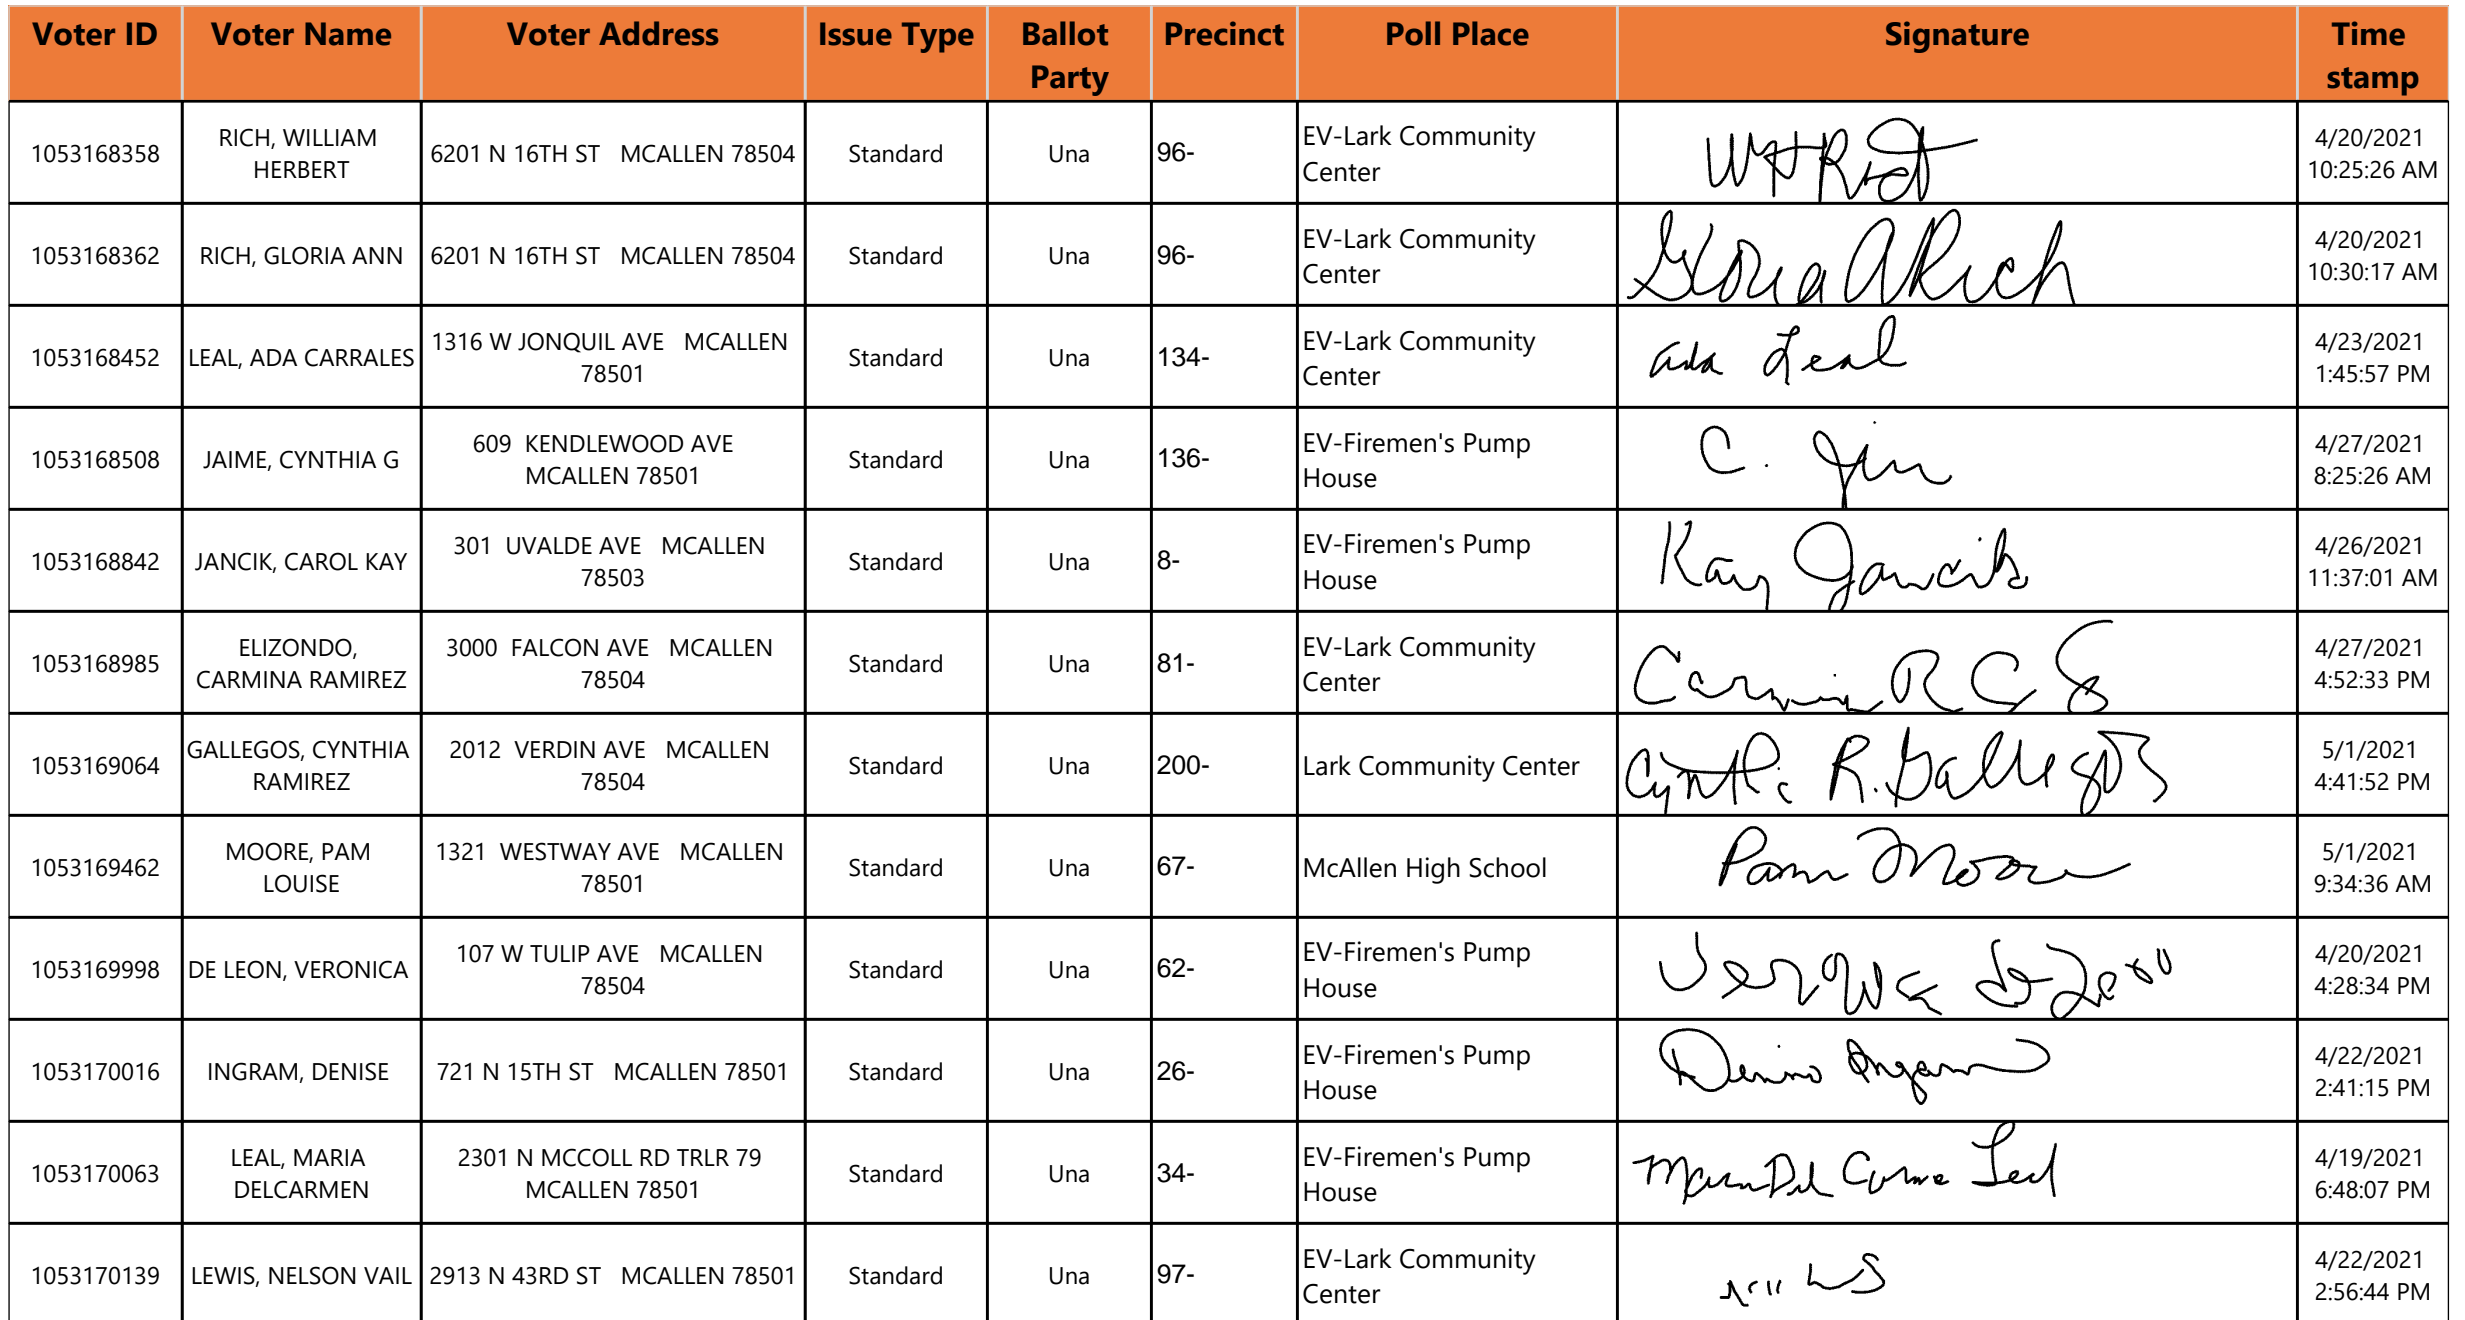 Voter ID Voter Name Voter Address Issue Type Ballot Party Precinct Poll Place Signature Time stamp
1053168358 RICH, WILLIAM HERBERT 6201 N 16TH ST MCALLEN 78504 Standard Una 96- EV-Lark Community Center 4/20/2021 10:25:26 AM
1053168362 RICH, GLORIA ANN 6201 N 16TH ST MCALLEN 78504 Standard Una 96- EV-Lark Community Center Gloria A Rich 4/20/2021 10:30:17 AM
1053168452 LEAL, ADA CARRALES 1316 W JONQUIL AVE MCALLEN 78501 Standard Una 134- EV-Lark Community Center Ada Leal 4/23/2021 1:45:57 PM
1053168508 JAIME, CYNTHIA G 609 KENDLEWOOD AVE MCALLEN 78501 Standard Una 136- EV-Firemen's Pump House C. 4/27/2021 8:25:26 AM
1053168842 JANCIK, CAROL KAY 301 UVALDE AVE MCALLEN 78503 Standard Una 8- EV-Firemen's Pump House Kay Jancik 4/26/2021 11:37:01 AM
1053168985 ELIZONDO, CARMINA RAMIREZ 3000 FALCON AVE MCALLEN 78504 Standard Una 81- EV-Lark Community Center 4/27/2021 4:52:33 PM
1053169064 GALLEGOS, CYNTHIA RAMIREZ 2012 VERDIN AVE MCALLEN 78504 Standard Una 200- Lark Community Center R. Gallegos 5/1/2021 4:41:52 PM
1053169462 MOORE, PAM LOUISE 1321 WESTWAY AVE MCALLEN 78501 Standard Una 67- McAllen High School Pam Moore 5/1/2021 9:34:36 AM
1053169998 DE LEON, VERONICA 107 W TULIP AVE MCALLEN 78504 Standard Una 62- EV-Firemen's Pump House 4/20/2021 4:28:34 PM
1053170016 INGRAM, DENISE 721 N 15TH ST MCALLEN 78501 Standard Una 26- EV-Firemen's Pump House 4/22/2021 2:41:15 PM
1053170063 LEAL, MARIA DELCARMEN 2301 N MCCOLL RD TRLR 79 MCALLEN 78501 Standard Una 34- EV-Firemen's Pump House Leal 4/19/2021 6:48:07 PM
1053170139 LEWIS, NELSON VAIL 2913 N 43RD ST MCALLEN 78501 Standard Una 97- EV-Lark Community Center 4/22/2021 2:56:44 PM